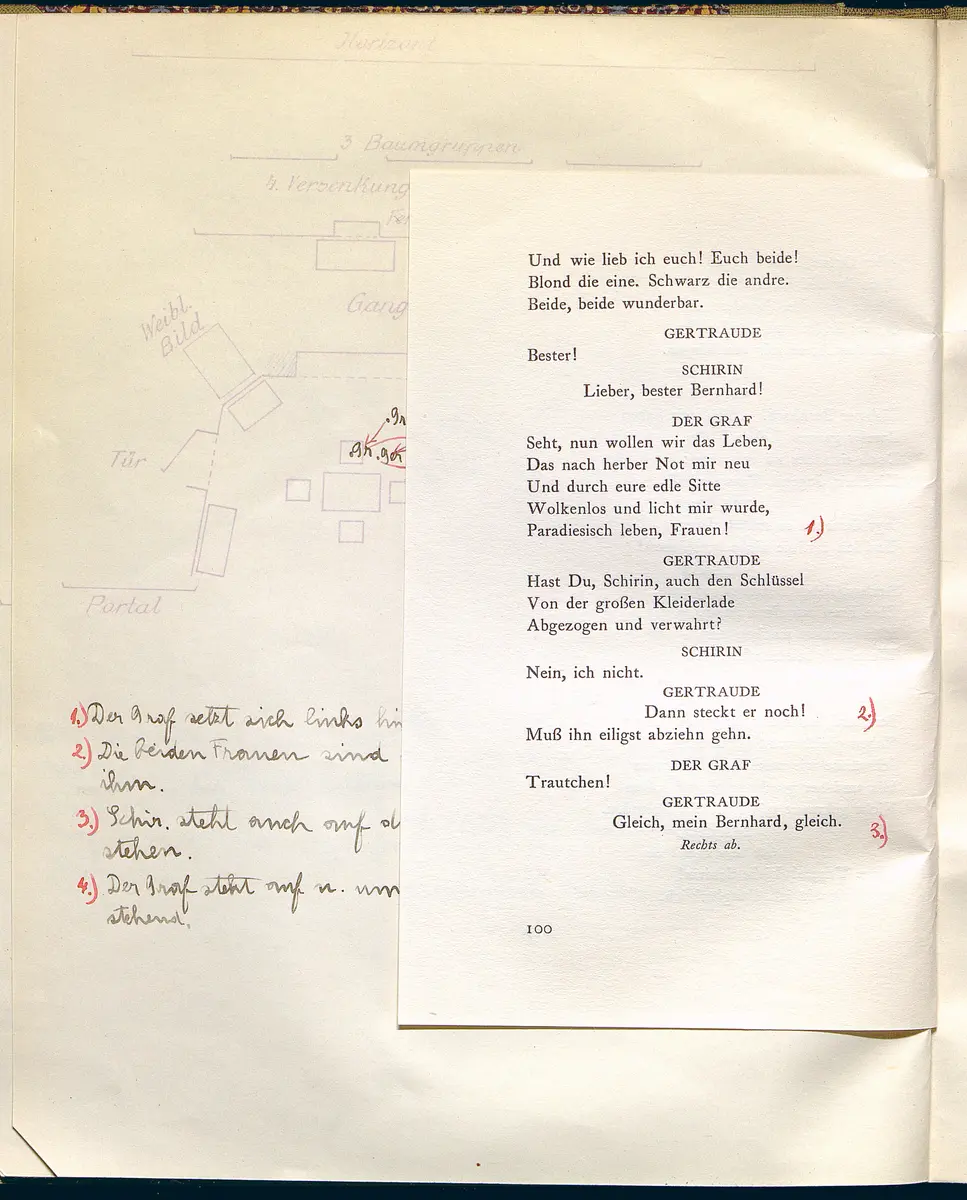 Horizont
3 Baumgruppen
4. Versenkung
Weibl.
Bild
Gang
Tür
Portal
1.) Der Graf setzt sich links
2.) Die beiden Frauen sind
ihm.
3.) Schir. steht auch auf
stehen.
4.) Der Graf steht auf u.
stehend.
Und wie lieb ich euch! Euch beide!
Blond die eine. Schwarz die andre.
Beide, beide wunderbar.
GERTRAUDE
Bester!
SCHIRIN
Lieber, bester Bernhard!
DER GRAF
Seht, nun wollen wir das Leben,
Das nach herber Not mir neu
Und durch eure edle Sitte
Wolkenlos und licht mir wurde,
Paradiesisch leben, Frauen! 1.)
GERTRAUDE
Hast Du, Schirin, auch den Schlüssel
Von der großen Kleiderlade
Abgezogen und verwahrt?
SCHIRIN
Nein, ich nicht.
GERTRAUDE
Dann steckt er noch! 2.)
Muß ihn eiligst abziehn gehn.
DER GRAF
Trautchen!
GERTRAUDE
Gleich, mein Bernhard, gleich. 3.)
Rechts ab.
100